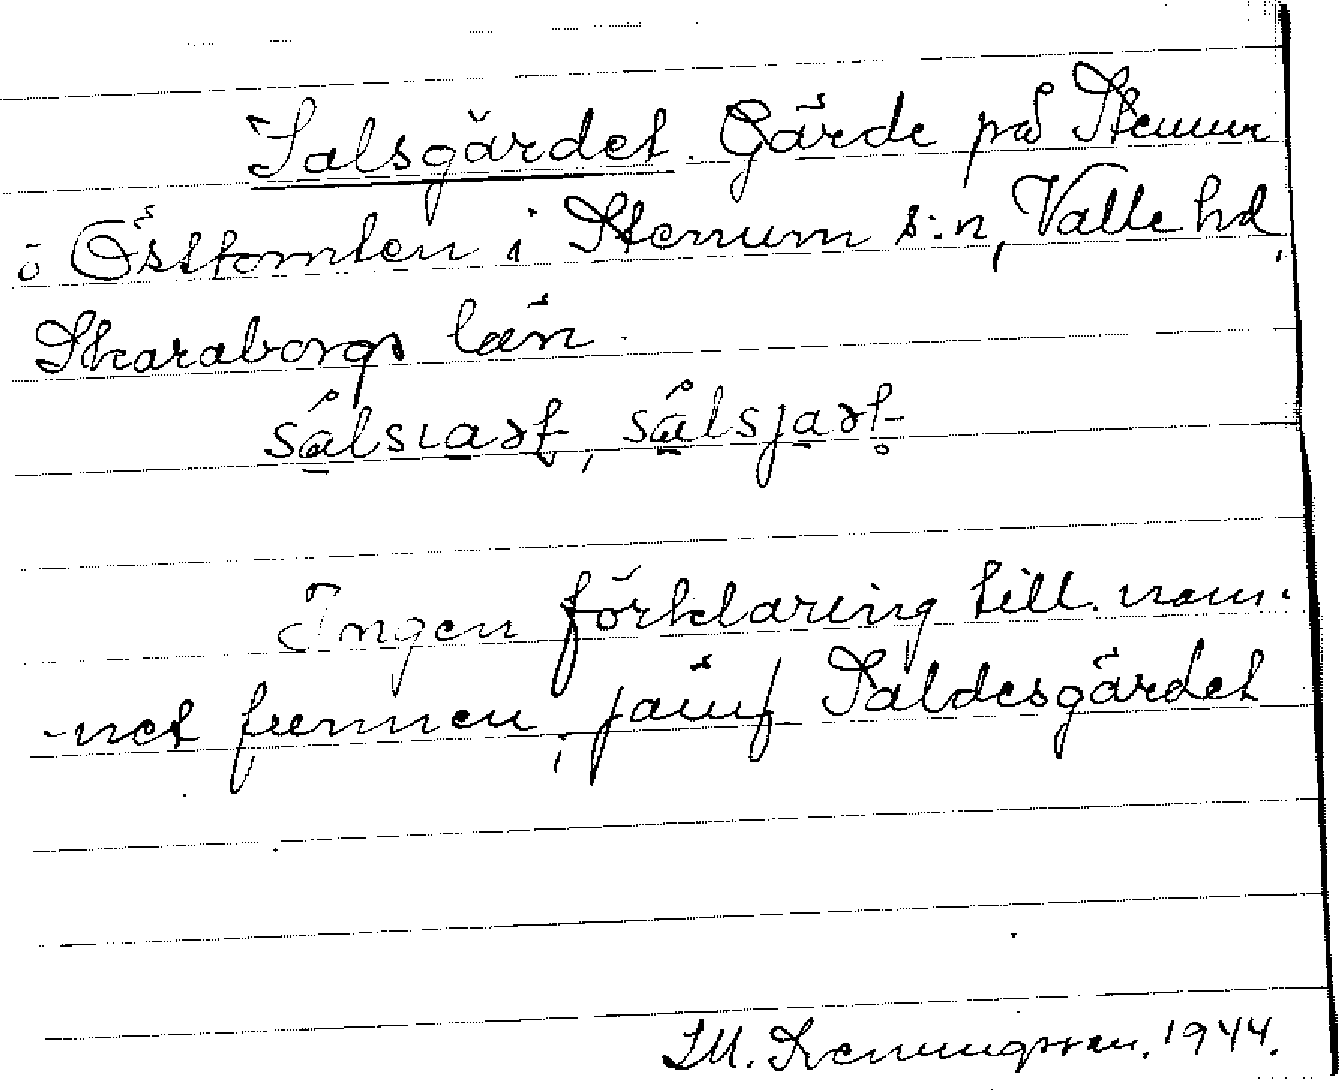 Salsgärdet. Gärde på Stenum
o Östtomten i Stenum s:n, Valle hd,
Skaraborgs län.
sâlsɩaṣt, sâlsjaṣt
Ingen förklaring till nam-
-net funnen, jämf Saldesgärdet
1944.